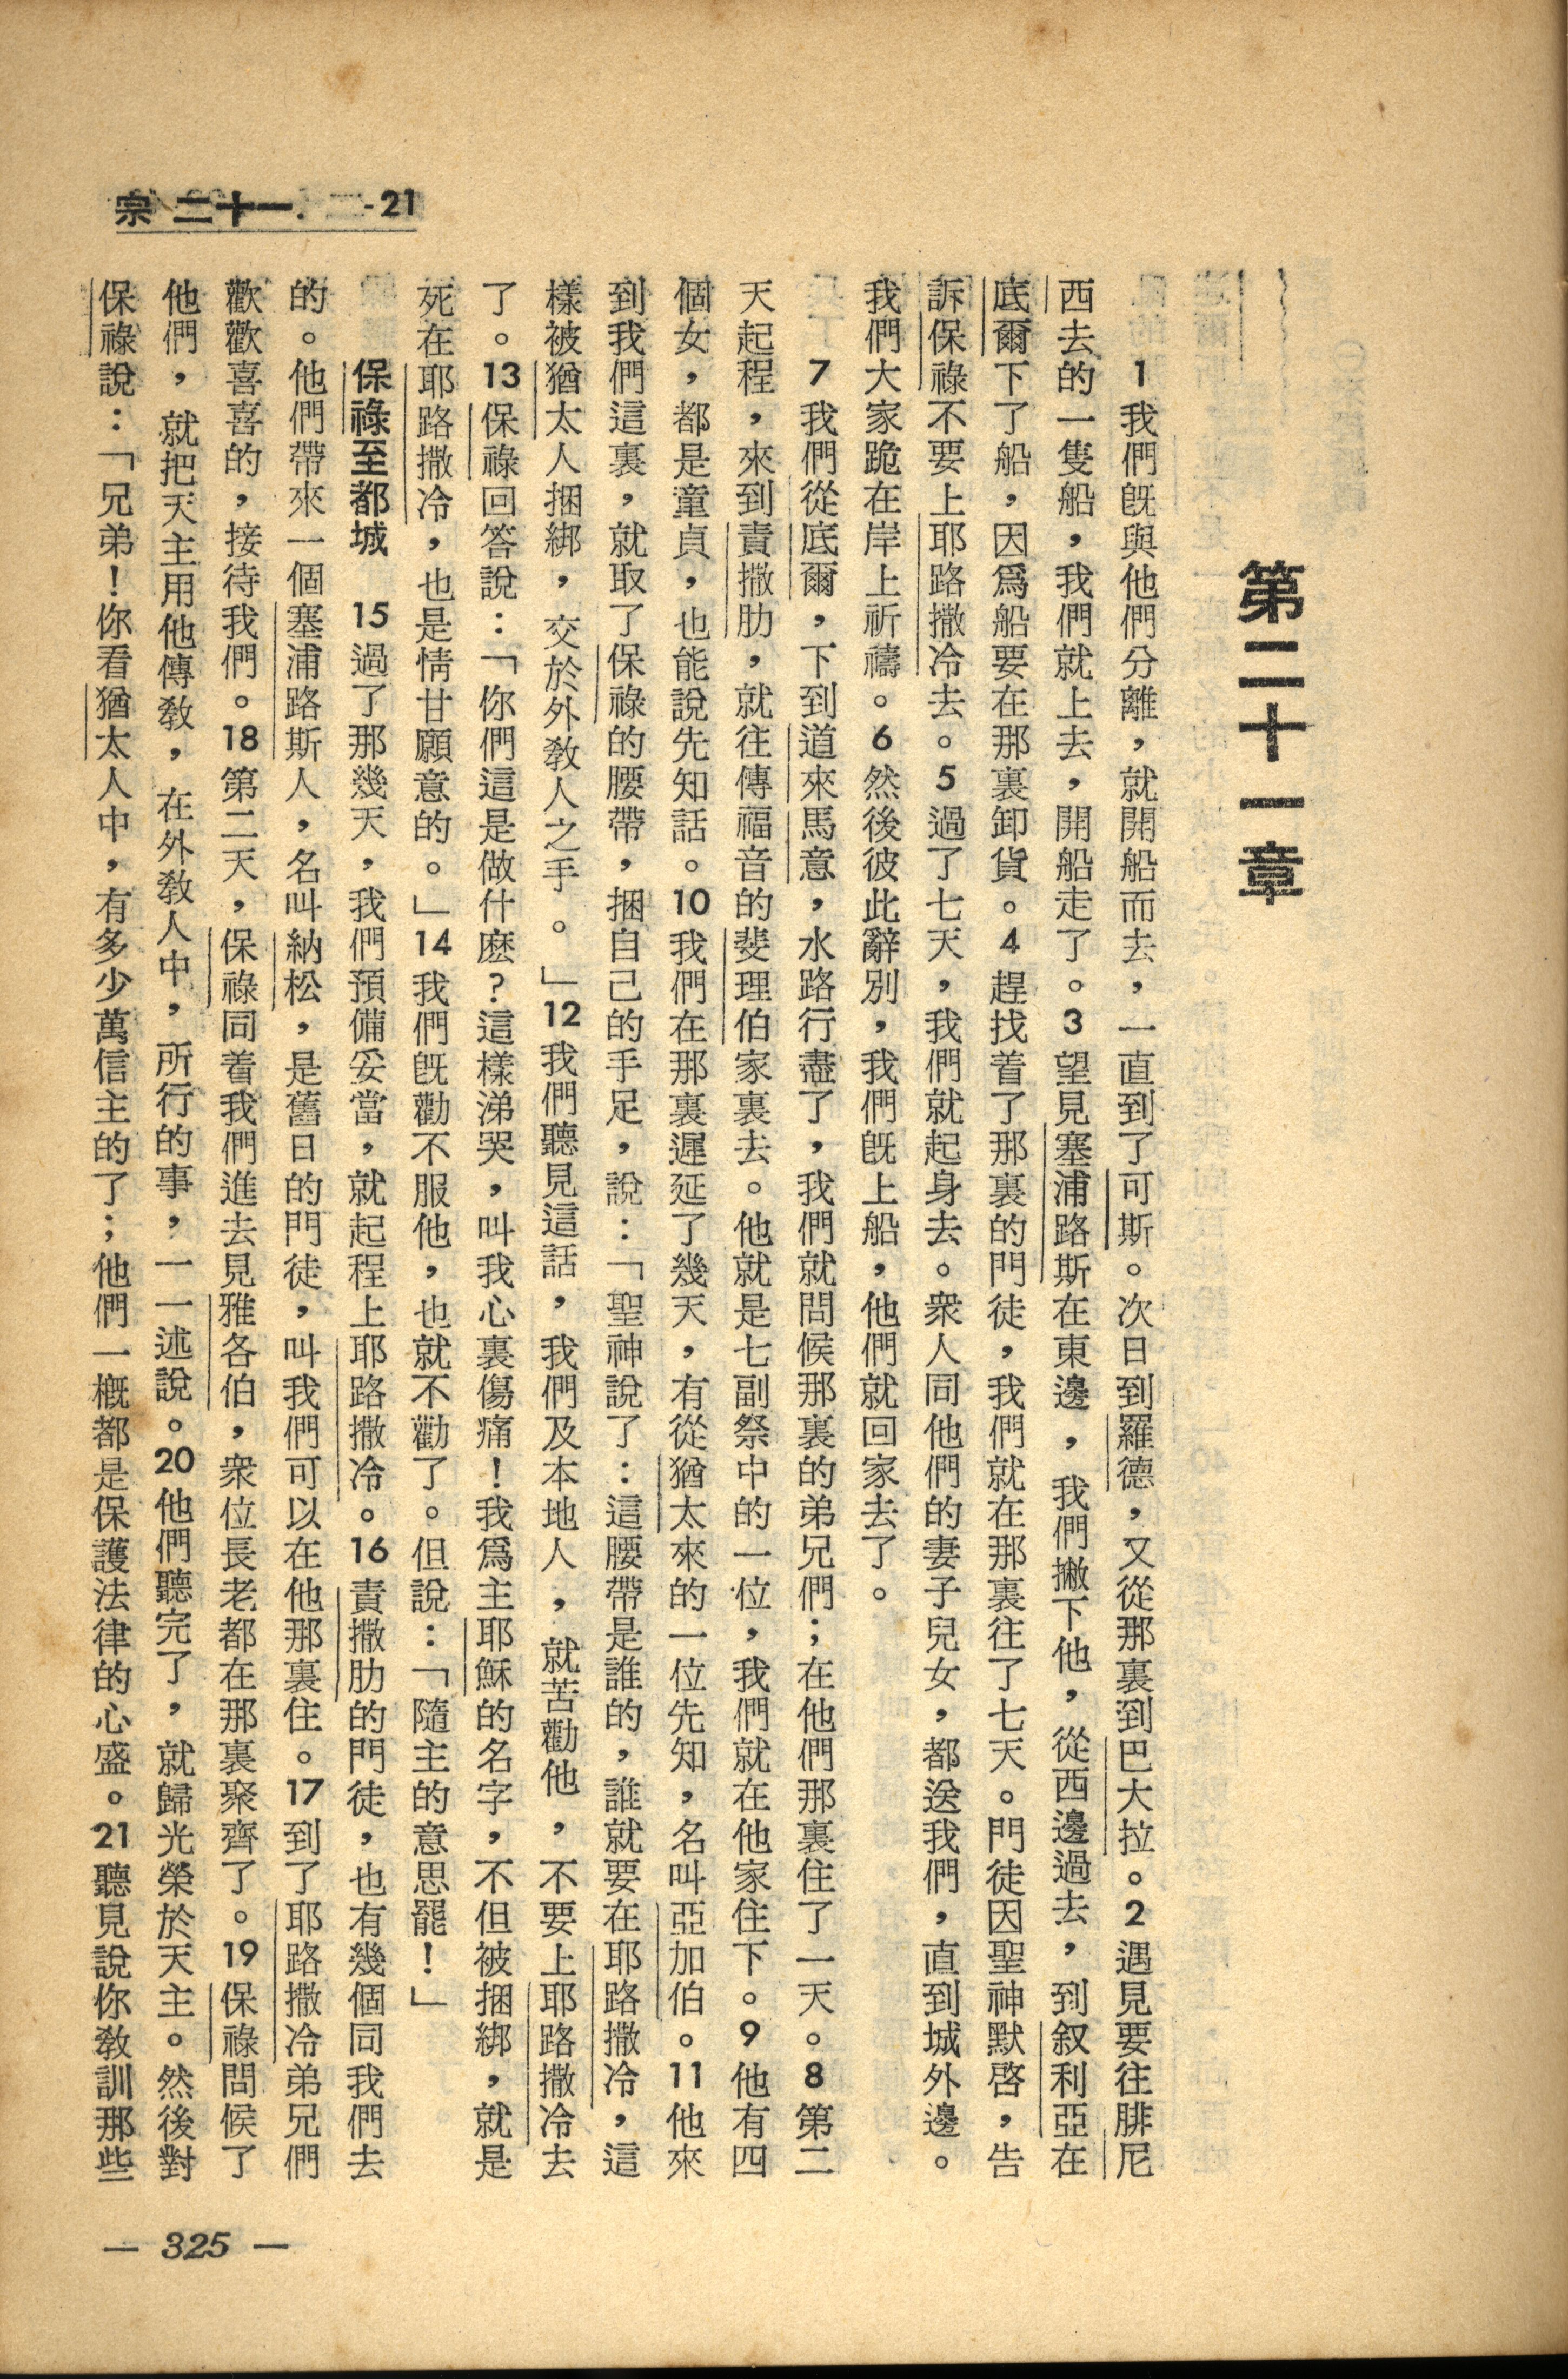 宗 二十一.  -21
第二十一章
1我們旣與他們分離，就開船而去，一直到了可斯。次日到羅德，又從那裏到巴大拉。2遇見要往腓尼
西去的一隻船，我們就上去，開船走了。3望見塞浦路斯在東邊，我們撇下他，從西邊過去，到叙利亞在
底爾下了船，因爲船要在那裏卸貨。4趕找着了那裏的門徒，我們就在那裏往了七天。門徒因聖神默啓，告
訴保祿不要上耶路撒冷去。5過了七天，我們就起身去。衆人同他們的妻子兒女，都送我們，直到城外邊。
我們大家跪在岸上祈禱。6然後彼此辭別，我們旣上船，他們就回家去了。
7我們從底爾，下到道來馬意，水路行盡了，我們就問候那裏的弟兄們；在他們那裏住了一天。8第二
天起程，來到責撒肋，就往傳福音的斐理伯家裏去。他就是七副祭中的一位，我們就在他家住下。9他有四
個女，都是童貞，也能說先知話。10我們在那裏遲延了幾天，有從猶太來的一位先知，名叫亞加伯。11他來
到我們這裏，就取了保祿的腰帶，捆自己的手足，說：「聖神說了：這腰帶是誰的，誰就要在耶路撒冷，這
樣被猶太人捆綁，交於外敎人之手。」12我們聽見這話，我們及本地人，就苦勸他，不要上耶路撒冷去
了。13保祿回答說：「你們這是做什麽？這樣涕哭，叫我心裏傷痛！我爲主耶穌的名字，不但被捆綁，就是
死在耶路撒冷，也是情甘願意的。」14我們旣勸不服他，也就不勸了。但說：「隨主的意思罷！」
保祿至都城　15過了那幾天，我們預備妥當，就起程上耶路撒冷。16責撒肋的門徒，也有幾個同我們去
的。他們帶來一個塞浦路斯人，名叫納松，是舊日的門徒，叫我們可以在他那裏住。17到了耶路撒冷弟兄們
歡歡喜喜的，接待我們。18第二天，保祿同着我們進去見雅各伯，衆位長老都在那裏聚齊了。19保祿問候了
他們，就把天主用他傳敎，在外敎人中，所行的事，一一述說。20他們聽完了，就歸光榮於天主。然後對
保祿說：「兄弟！你看猶太人中，有多少萬信主的了；他們一槪都是保護法律的心盛。21聽見說你敎訓那些
— 325 —